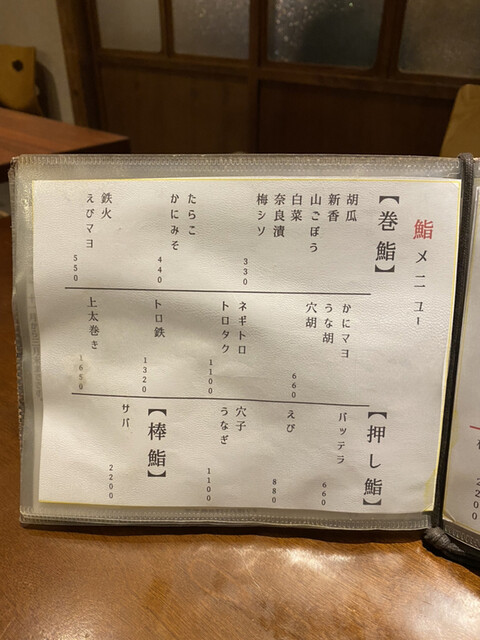 鮨メニュー
【巻鮨】
胡瓜
新香
山ごぼう
白菜
奈良漬
梅シソ
330
たらこ
かにみそ
440
鉄火
えびマヨ
550
かにマヨ
うな胡
穴胡
660
ネギトロ
トロタク
1100
トロ鉄
1320
上太巻き
1650
【押し鮨】
バッテラ
660
えび
880
穴子
うなぎ
1100
【棒鮨】
サバ
2200
2200